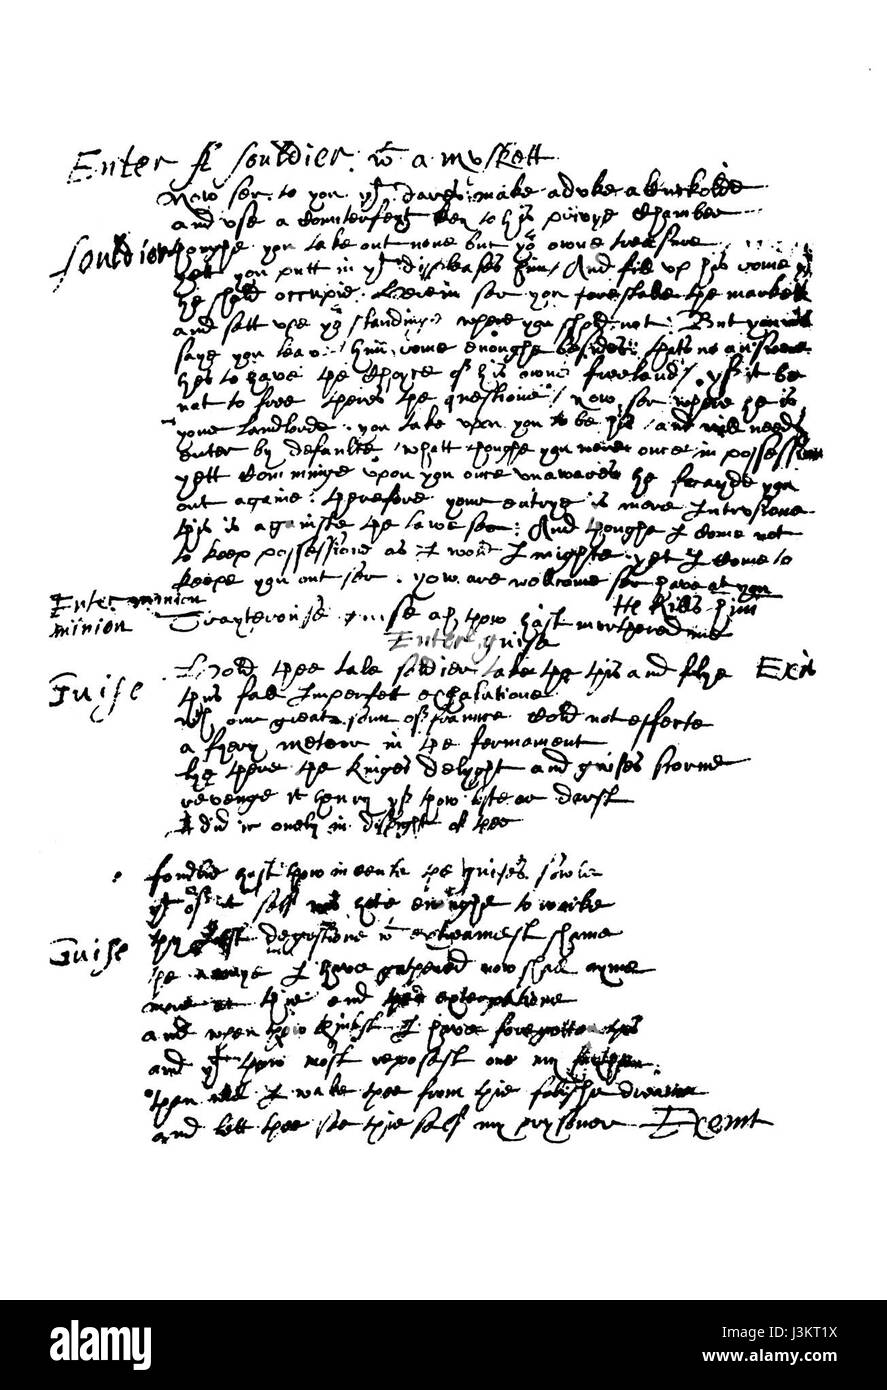 Enter A souldier. wt a muskett
Now ser to you yt dares make a duke a Cuckolde
and use a Counterfeyt key to his privye Chamber
souldier thoughe you take out none but yor owne treasure
yett you putt in yt displeases him / And fill up his rome yt
he shold occupie. Herein ser you forestalle the markett
and sett upe yor standinge where you shold not: But you will
saye you leave him rome enoughe besides: thats no answere
hes to have the Choyce of his owne freeland / yf it be
not to free theres the questione / now ser where he is
your landlorde. you take upon you to be his / and will needs
enter by defaulte / whatt thoughe you were once in possession
yett Comminge upon you once unawares he frayde you
out againe. therefore your entrye is mere Intrusione
this is againste the lawe ser: And thoughe I Come not
to keep possessione as I wold I mighte yet I Come to
keepe you out ser. yow are wellcome ser have at you
Enter minion He Kills him
minion Trayterouse guise ah thow hast murthered me
Enter guise
Guise Hold thee tale soldier take the this and flye Exit
thus fall Imperfett exhalatione
wch our great sonn of fraunce Cold not effecte
a fyery meteor in the fermament
lye there the Kinges delyght and guises scorne
revenge it henry yf thow liste or darst
I did it onely in dispight of thee
fondlie hast thow incenste the guises sowle
yt of it self was hote enoughe to worke
Guise thy Just degestione wt extreamest shame
the armye I have gathered now shall ayme
more at thie end then exterpatione
and when thow thinkst I have foregotten this
and yt thow most reposest one my faythe
then will I wake thee from thie folishe dreame
and lett thee see thie self my prysoner Exeunt
alamy
Image ID: J3KT1X
www.alamy.com